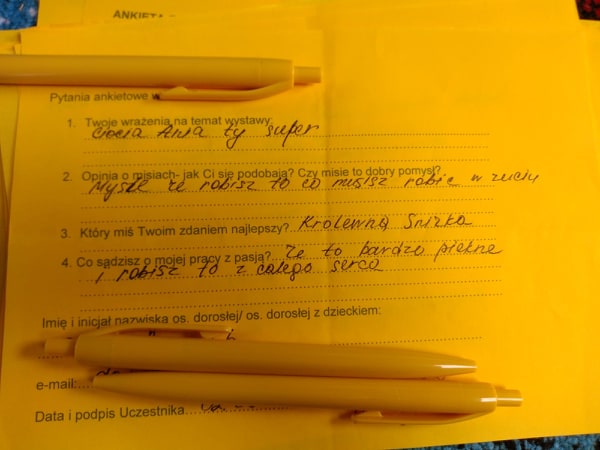 ANKIETA
Pytania ankietowe
1. Twoje wrażenia na temat wystawy:
Ciocia Ania ty super
2. Opinia o misiach- jak Ci się podobają? Czy misie to dobry pomysł?
Myśle że robisz to co musisz robić w rzuciu
3. Który miś Twoim zdaniem najlepszy? Krolewna Snizka
4. Co sądzisz o mojej pracy z pasją? Ze to bardzo piekne
i robisz to z całego serca
Imię i inicjał nazwiska os. dorosłej/ os. dorosłej z dzieckiem:
e-mail:
Data i podpis Uczestnika